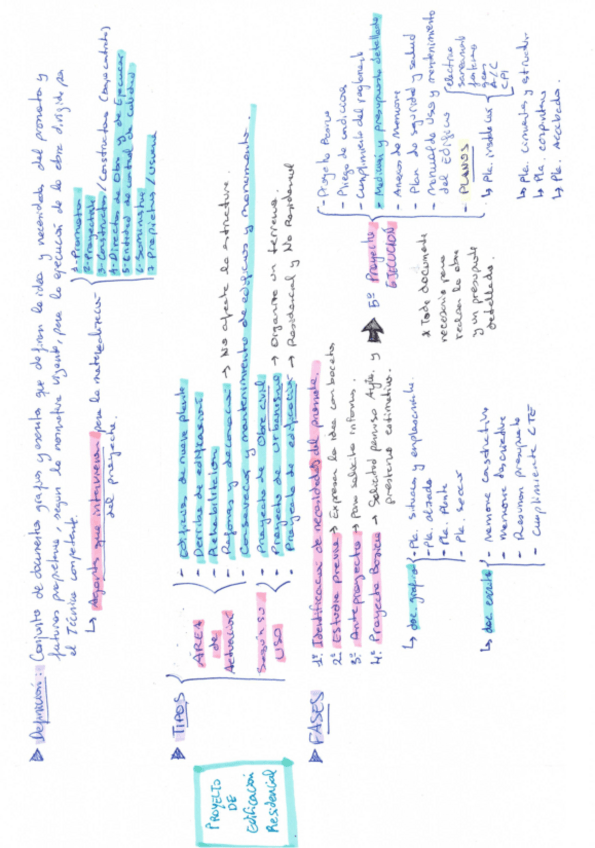 PROYECTO
DE
Edificación
Residencial
Definición: Conjunto de documentos graficos y escritos que definen la idea y necesidades del promotor y
futuros propietarios, según la normativa vigente, para la ejecución de la obra dirigida por
el Técnico competente.
Agentes que intervienen para la materialización
del proyecto.
1-Promotor
2-Proyectista
3-Constructor/Constructora
4-Director de Obra y de Ejecución
5-Entidad de control de calidad
6-Suministros
7-Propietarios/usuarios
TIPOS
AREA
de
Actuación
- Edificios de nueva planta
- Derribo de edificación
- Rehabilitación
- Reforma y decoración → No afecta la estructura.
- Conservación y mantenimiento de edificios y monumento.
Según su
USO
- Proyecto de Obra civil
- Proyecto de urbanismo → Organiza un terreno.
- Proyecto de edificación → Residencial y No Residencial
FASES
1º Identificación de necesidades del promotor.
2º Estudio Previo → Expresar la idea con bocetos
3º Anteproyecto → Para solicitar informes.
4º Proyecto Básico → Solicitud permiso Ayto. y
prestamo estimativo.
doc. grafico
- Pla. situación y emplazamiento.
- Pla. alzado
- Pla. Planta
- Pla. sección
doc. escrito
- memoria constructiva
- memoria descriptiva
- Resumen presupuesto
- Cumplimiento CTE
5º Proyecto
EJECUCIÓN
* Todo documento
necesario para
realizar la obra
y un presupuesto
detallado.
- Proyecto Básico
- Pliego de condiciones
- Cumplimiento del reglamento
* Medición y presupuesto detallado
- Anexos de Memoria
- Plan de seguridad y salud
- Manual de Uso y mantenimiento
del Edificio
- PLANOS
Pla. instalación
electrico
saneamiento
fontaneria
gas
A/C
CPI
Pla. cimientos y estructura
Pla. carpinteria
Pla. Acabados.